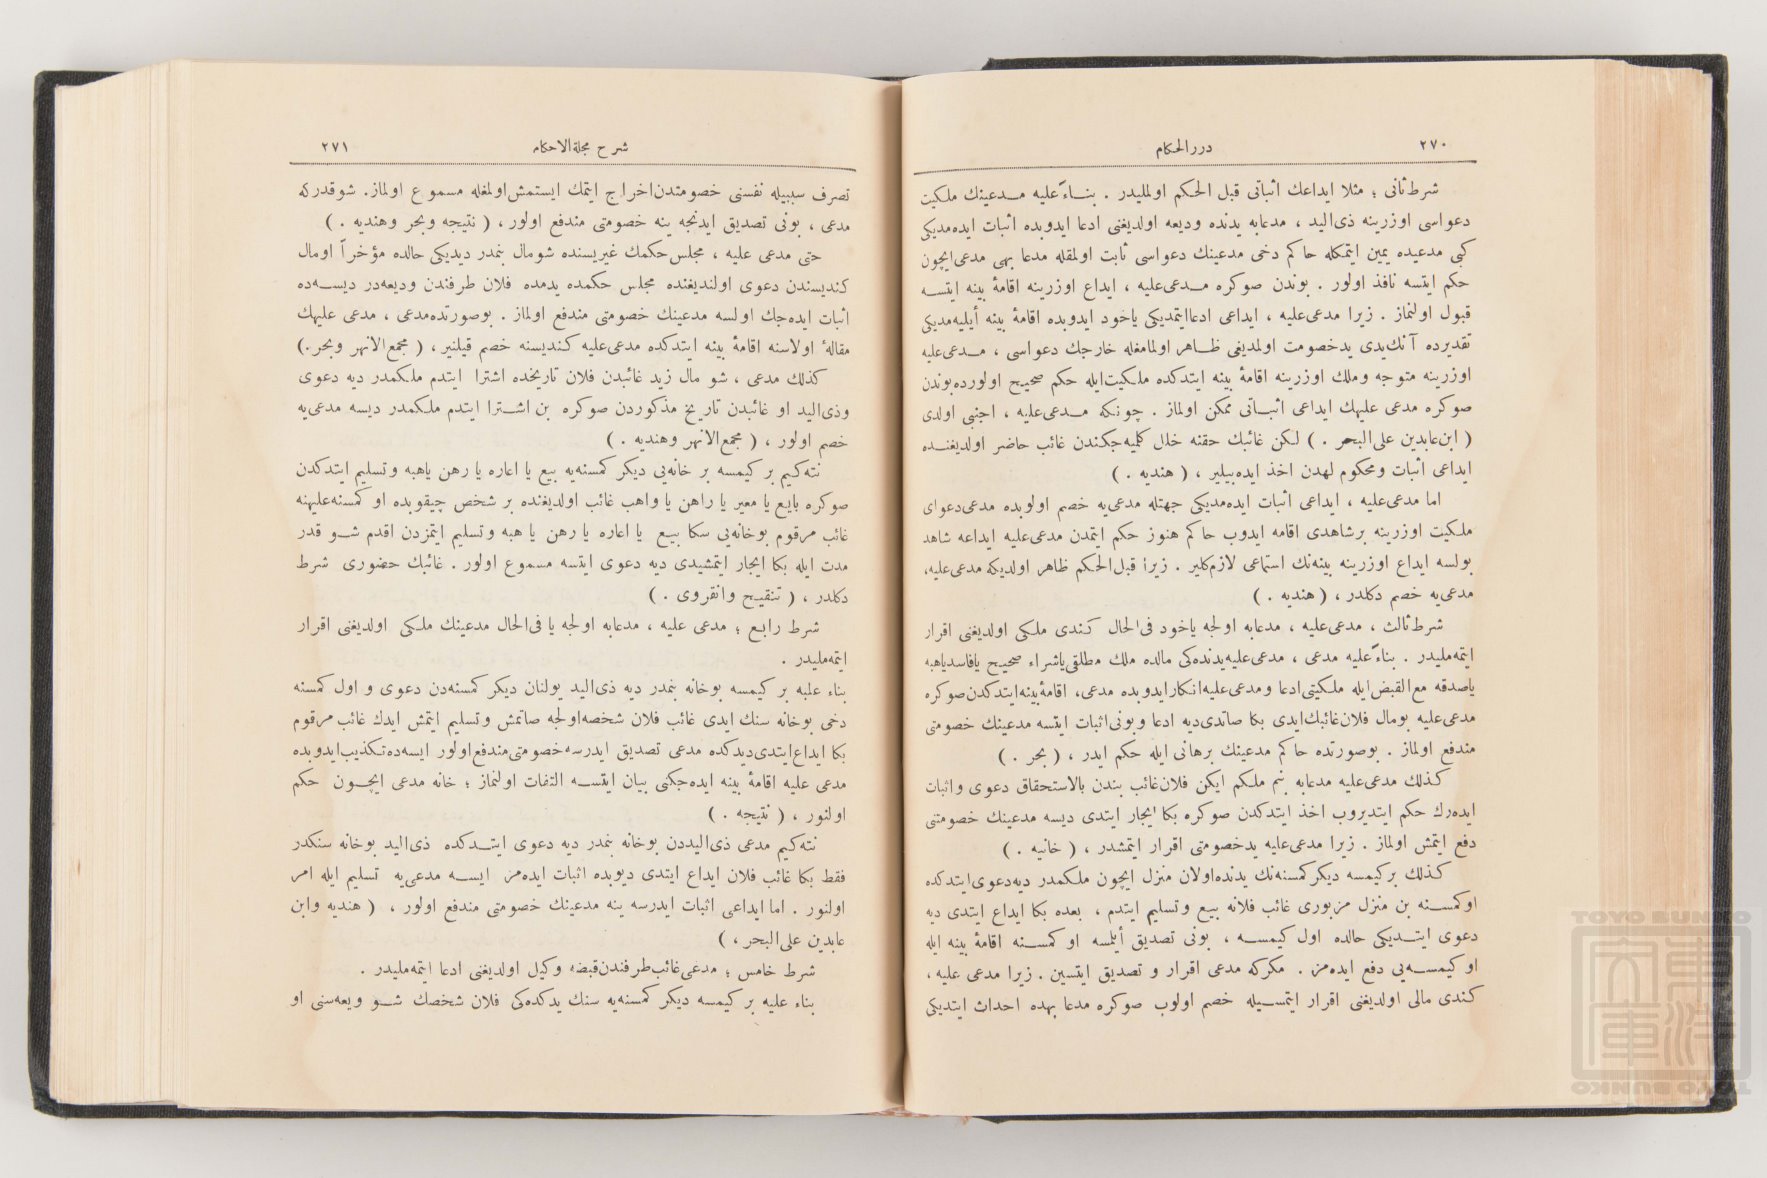 ٢٧٠
دررالحكام
شرط ثانی ؛ مثلا ایداعك اثباتی قبل الحكم اولملیدر . بنـاءً علیه مـدعینك ملكیت
دعواسی اوزرینه ذی‌الید ، مدعابه یدنده ودیعه اولدیغنی ادعا ایدوبده اثبات ایده‌مدیكی
كبی مدعیده یمین ایتمكله حاكم دخی مدعینك دعواسی ثابت اولمقله مدعا بهی مدعی‌ایچون
حكم ایتسه نافذ اولور . بوندن صوكره مـدعی‌علیه ، ایداع اوزرینه اقامهٔ بینه ایتسـه
قبول اولنماز . زیرا مدعی‌علیه ، ایداعی ادعاایتمدیكی یاخود ایدوبده اقامهٔ بینه أیلیه‌مدیكی
تقدیرده آنك‌یدی یدخصومت اولمدیغی ظـاهر اولمامغله خارجك دعواسی ، مـدعی‌علیه
اوزرینه متوجه وملك اوزرینه اقامهٔ بینه ایتدكده ملكیت‌ایله حكم صحیح اولورده‌بوندن
صوكره مدعی علیهك ایداعی اثبـاتی ممكن اولماز . چونكه مـدعی‌علیه ، اجنبی اولدی
( ابن‌عابدین علی‌البحر . ) لكن غائبك حقنه خلل كلمیه‌جكندن غائب حاضر اولدیغنـده
ایداعی اثبات ومحكوم لهدن اخذ ایده‌بیلیر ، ( هندیه . )
اما مدعی‌علیه ، ایداعی اثبات ایده‌مدیكی جهتله مدعی‌یه خصم اولوبده مدعی‌دعوای
ملكیت اوزرینه برشاهدی اقامه ایدوب حاكم هنوز حكم ایتمدن مدعی‌علیه ایداعه شاهد
بولسه ایداع اوزرینه بینه‌نك استماعی لازم‌كلیر . زیرا قبل‌الحكم ظاهر اولدیكه مدعی‌علیه،
مدعی‌یه خصم دكلدر ، ( هندیه . )
شرط ثالث ، مدعی‌علیه ، مدعابه اولجه یاخود فی‌الحال كندی ملكی اولدیغنی اقرار
ایتمه‌ملیدر . بناءً علیه مدعی ، مدعی‌علیه‌یدنده‌كی مالده ملك مطلقی‌یاشراء صحیح یافاسدیاهبه
یاصدقه مع‌القبض‌ایله ملكیتی‌ادعا ومدعی‌علیه‌انكارایدوبده مدعی، اقامهٔ‌بینه‌ایتدكدن‌صوكره
مدعی‌علیه بومال فلان‌غائبك‌ایدی بكا صاتدی‌دیه ادعا وبونی‌اثبات ایتسه مدعینك خصومتی
مندفع اولماز . بوصورتده حاكم مدعینك برهانی ایله حكم ایدر ، ( بحر . )
كـذلك مدعی‌علیه مدعابه بنم ملكم ایكن فلان‌غائب بندن بالاستحقاق دعوی واثبات
ایده‌رك حكم ایتدیروب اخذ ایتدكدن صوكره بكا ایجار ایتدی دیسه مدعینك خصومتنی
دفع ایتمش اولماز . زیرا مدعی‌علیه یدخصومتی اقرار ایتمشدر ، ( خانیه . )
كـذلك بركیمسه دیكر كمسنه‌نك یدنده‌اولان منزل ایچون ملكمدر دیه‌دعوی‌ایتدكده
اوكمسـنه بن منزل مزبوری غائب فلانه بیع وتسلیم ایتدم ، بعده بكا ایداع ایتدی دیه
دعوی ایتـدیكی حالده اول كیمسـه ، بونی تصدیق أیلسه او كمسـنه اقامهٔ بینه ایله
او كیمسـه‌یی دفع ایده‌مز . مكركه مدعی اقرار و تصدیق ایتسین . زیرا مدعی علیه ،
كندی مالی اولدیغنی اقرار ایتمسـیله خصم اولوب صوكره مدعا بهده احداث ایتدیكی
شرح مجلة‌الاحكام
٢٧١
تصرف سببیله نفسنی خصومتدن‌اخراج ایتمك ایستمش‌اولمغله مسموع اولماز. شوقدركه
مدعی ، بونی تصدیق ایدنجه ینه خصومتی مندفع اولور ، ( نتیجه وبحر وهندیه . )
حتی مدعی علیه ، مجلس‌حكمك غیریسنده شومال بنمدر دیدیكی حالده مؤخراً اومال
كندیسندن دعوی اولندیغنده مجلس حكمده یدمده فلان طرفندن ودیعه‌در دیسـه‌ده
اثبات ایده‌جك اولسه مدعینك خصومتی مندفع اولماز . بوصورتده‌مدعی ، مدعی علیهك
مقالهٔ اولاسنه اقامهٔ بینه ایتدكده مدعی‌علیه كـندیسنه خصم قیلنیر ، ( مجمع‌الانهر وبحر.)
كذلك مدعی ، شو مال زید غائبدن فلان تاریخده اشترا ایتدم ملكمدر دیه دعوی
وذی‌الید او غائبدن تاریخ مذكوردن صوكره بن اشـترا ایتدم ملكمدر دیسه مدعی‌یه
خصم اولور ، ( مجمع‌الانهر وهندیه . )
نته‌كیم بر كیمسه بر خانه‌یی دیكر كمسنه‌یه بیع یا اعاره یا رهن یاهبه وتسلیم ایتدكدن
صوكره بایع یا معیر یا راهن یا واهب غائب اولدیغنده بر شخص چیقوبده او كمسنه‌علیهنه
غائب مرقوم بوخانه‌یی سكا بیـع یا اعاره یا رهن یا هبه وتسلیم ایتمزدن اقدم شـو قدر
مدت ایله بكا ایجار ایتمشیدی دیه دعوی ایتسه مسموع اولور . غائبك حضوری شرط
دكلدر ، ( تنقیح وانقروی . )
شرط رابع ؛ مدعی علیه ، مدعابه اولجه یا فی‌الحال مدعینك ملكی اولدیغنی اقرار
ایتمه‌ملیدر .
بناء علیه بر كیمسه بوخانه بنمدر دیه ذی‌الید بولنان دیكر كمسنه‌دن دعوی و اول كمسنه
دخی بوخانه سنك ایدی غائب فلان شخصه‌اولجه صاتمش وتسلیم ایتمش ایدك غائب مرقوم
بكا ایداع‌ایتدی‌دیدكده مدعی تصدیق ایدرسه‌خصومتی‌مندفع‌اولور ایسه‌ده‌تكذیب‌ایدوبده
مدعی علیه اقامهٔ بینه ایده‌جكنی بیان ایتسـه التفات اولنماز ؛ خانه مدعی ایچـون حكم
اولنور ، ( نتیجه . )
نته‌كیم مدعی ذی‌الیددن بوخانه بنمدر دیه دعوی ایتـدكده ذی‌الید بوخانه سنكدر
فقط بكا غائب فلان ایداع ایتدی دیوبده اثبات ایده‌مز ایسـه مدعی‌یه تسلیم ایله امر
اولنور . اما ایداعی اثبات ایدرسه ینه مدعینك خصومتی مندفع اولور ، ( هندیه وابن
عابدین علی‌البحر ، )
شرط خامس ؛ مدعی‌غائب‌طرفندن‌قبضه وكیل اولدیغنی ادعا ایتمه‌ملیدر .
بناء علیه بر كیمسه دیكر كمسنه‌یه سنك یدكده‌كی فلان شخصك شـو ودیعه‌سنی او
TOYO BUNKO
TOYO BUNKO